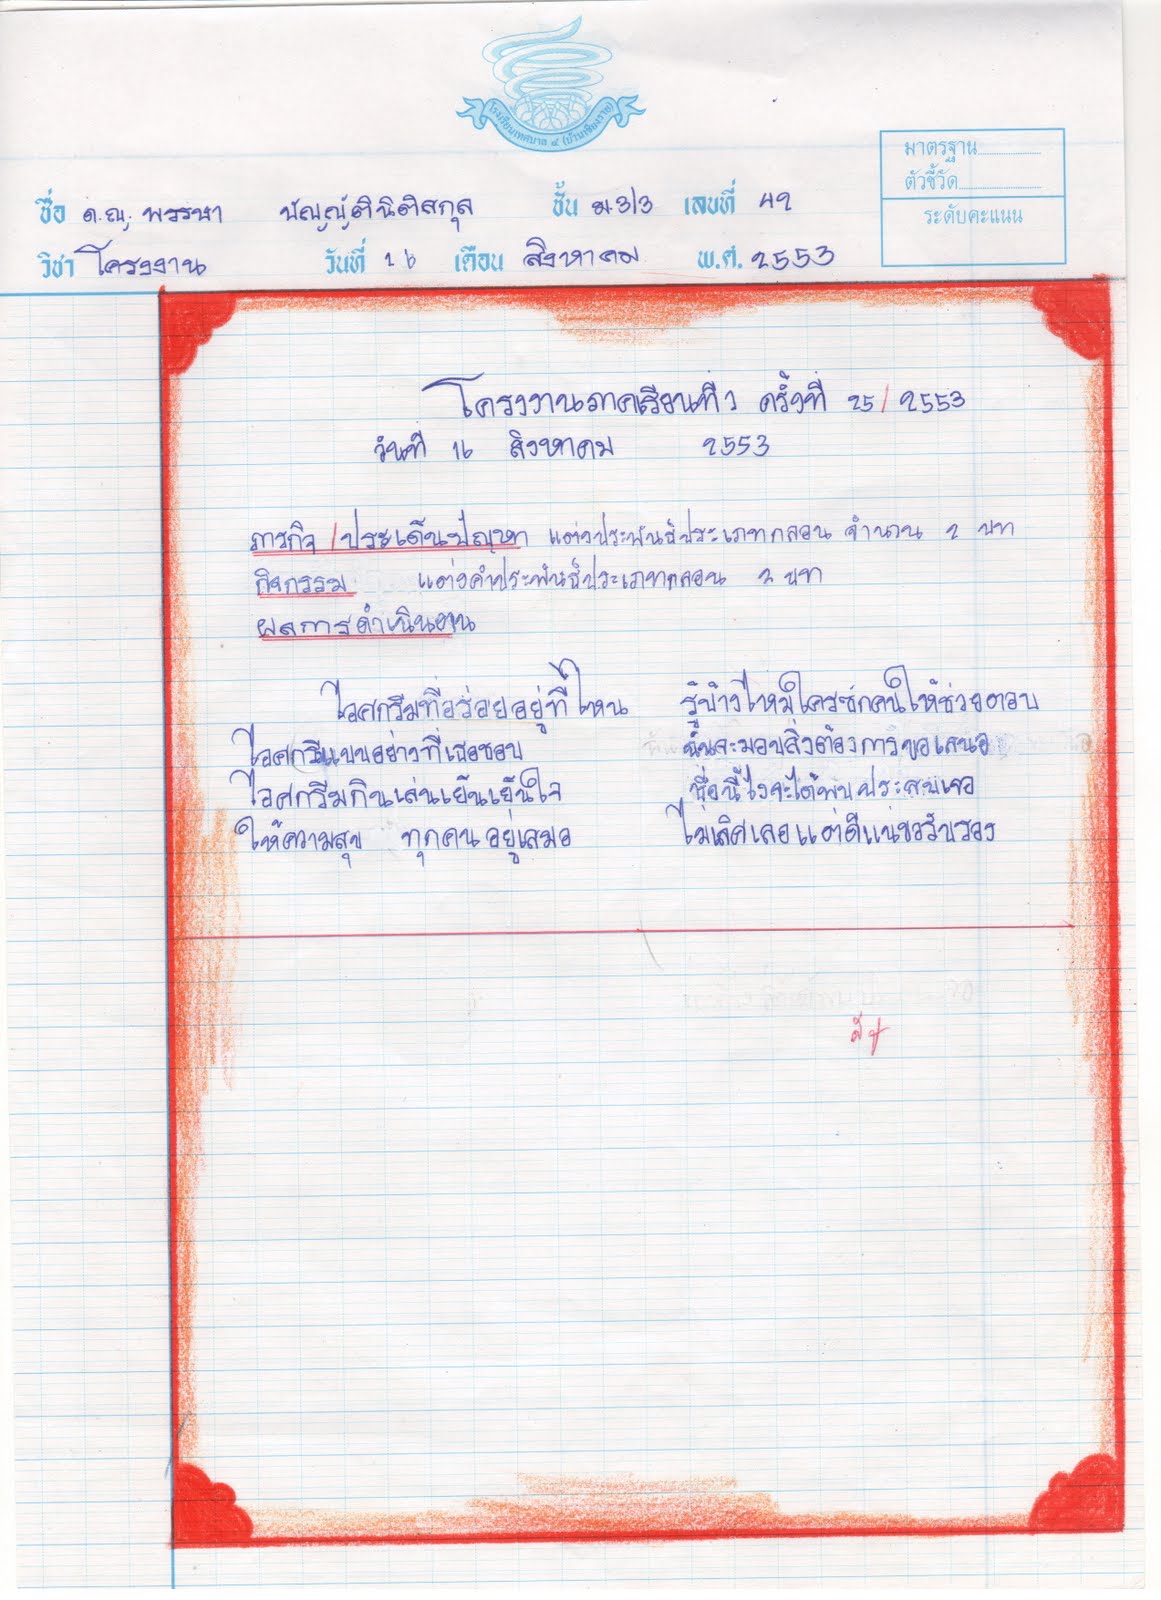 โรงเรียนเทศบาล ๔ (บ้านเชียงราย)
มาตรฐาน
ตัวชี้วัด
ระดับคะแนน
ชื่อ ด.ญ. พรรษา บัญญัตินิติสกุล ชั้น ม.3/3 เลขที่ 42
วิชา โครงงาน วันที่ 16 เดือน สิงหาคม พ.ศ. 2553
โครงงานภาคเรียนที่ 1 ครั้งที่ 25/2553
วันที่ 16 สิงหาคม 2553
ภารกิจ/ประเด็นปัญหา แต่งประพันธ์ประเภทกลอน จำนวน 2 บท
กิจกรรม แต่งคำประพันธ์ประเภทกลอน 2 บท
ผลการดำเนินงาน
ไอศกรีมที่อร่อยอยู่ที่ไหน รู้บ้างไหมใครซักคนให้ช่วยตอบ
ไอศกรีมแบบอย่างที่เธอชอบ ฉันจะมอบสิ่งต้องการขอเสนอ
ไอศกรีมกินเล่นเย็นเย็นใจ ชื่อนี้ไงจะได้พบประสบเจอ
ให้ความสุข ทุกคนอยู่เสมอ ไม่เลิศเลอแต่ดีแน่ขอรับรอง